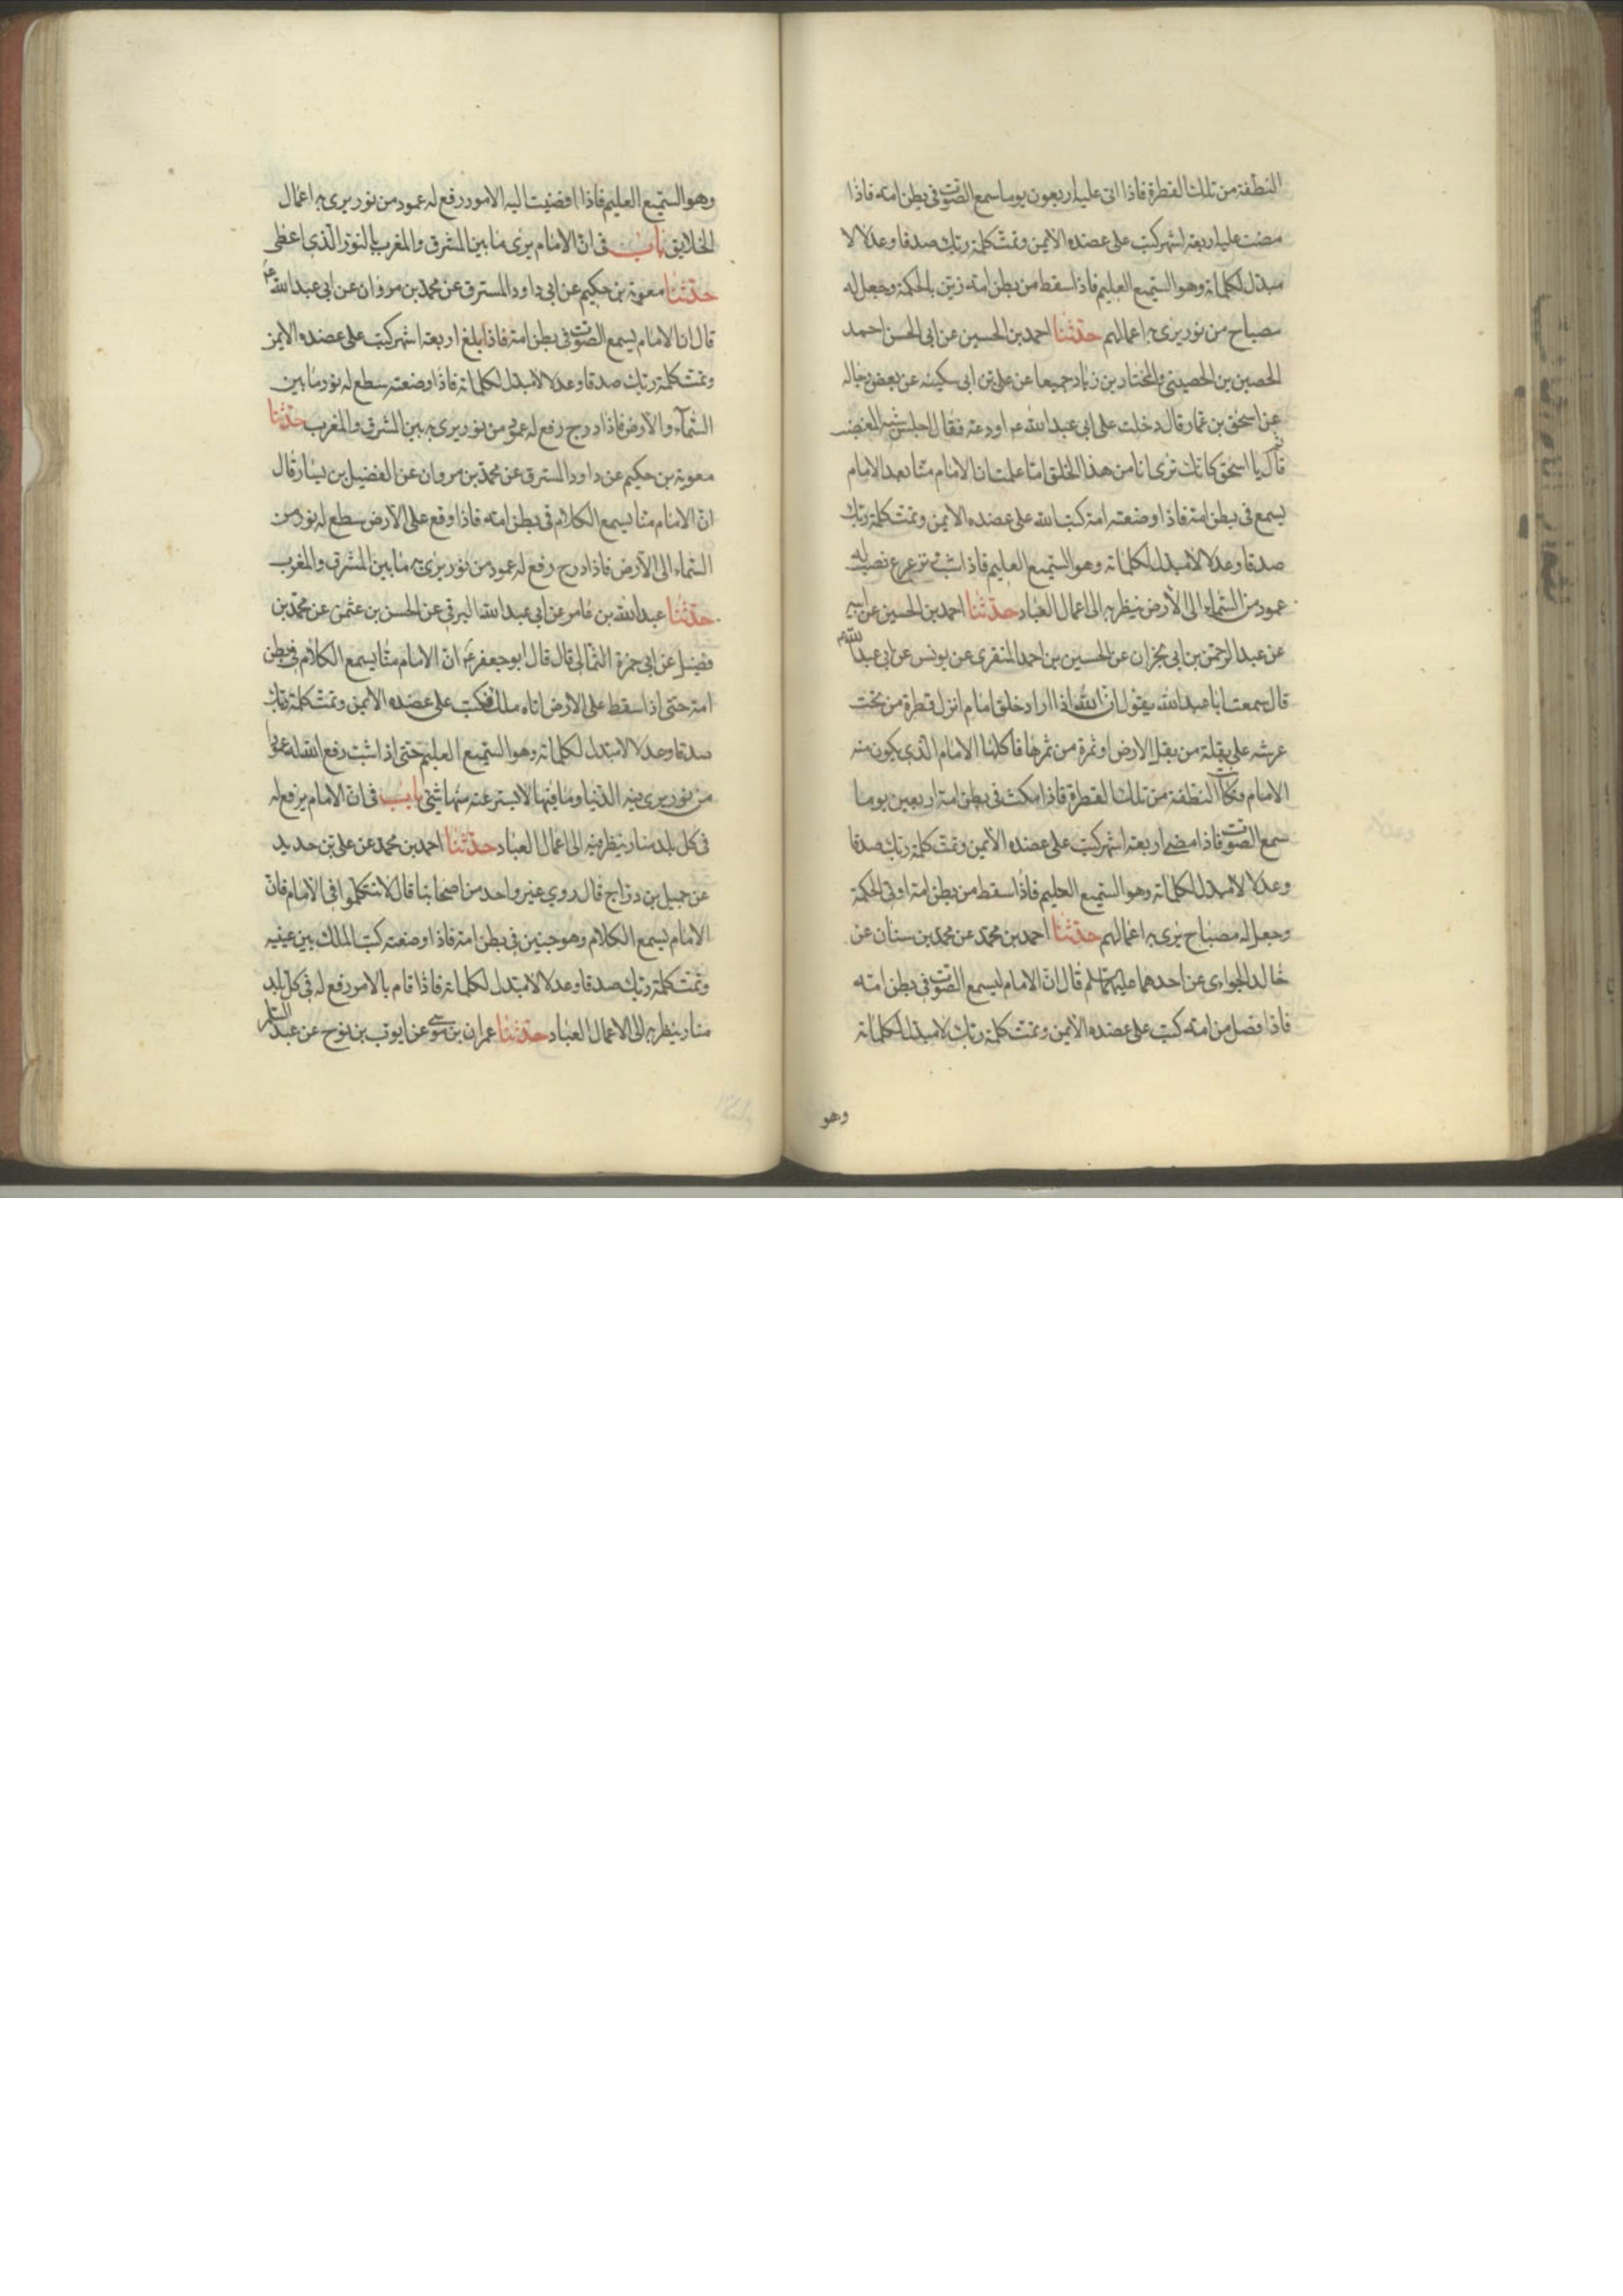 النطفة من تلك القطرة فاذا اتى عليه اربعون يوما سمع الصوت فى بطن امه فاذا
مضت عليه اربعة اشهر كتب على عضده الايمن وتمت كلمة ربك صدقا وعدلا لا
مبدل لكلماته وهو السميع العليم فاذا سقط من بطن امه زين بالحكمة وجعل له
مصباح من نور يرى به اعمالهم حدثنا احمد بن الحسين عن ابى الحسن احمد
الحصين بن الحصينى والمختار بن زياد جميعا عن على بن ابى سكينه عن بعض رجاله
عن اسحق بن عمار قال دخلت على ابى عبد الله عم اودعه فقال اجلس شبه المغضب
ثم قال يا اسحق كانك ترى انا من هذا الخلق اما علمت ان الامام منا بعد الامام
يسمع فى بطن امه فاذا وضعته امه كتب الله على عضده الايمن وتمت كلمة ربك
صدقا وعدلا لا مبدل لكلماته وهو السميع العليم فاذا شب وترعرع نصب له
عمود من السماء الى الارض ينظر به الى اعمال العباد حدثنا احمد بن الحسين عن ابيه
عن عبد الرحمن بن ابى نجران عن الحسين بن احمد المنقرى عن يونس عن ابى عبد الله عم
قال سمعت ابا عبد الله يقول ان الله اذا اراد خلق امام انزل قطرة من تحت
عرشه على بقلة من بقل الارض او ثمرة من ثمرها فاكلها الامام الذى يكون منه
الامام فكانت النطفة من تلك القطرة فاذا مكث فى بطن امه اربعين يوما
سمع الصوت فاذا مضى اربعة اشهر كتب على عضده الايمن وتمت كلمة ربك صدقا
وعدلا لا مبدل لكلماته وهو السميع العليم فاذا سقط من بطن امه اوتى الحكمة
وجعل له مصباح يرى به اعمالهم حدثنا احمد بن محمد عن محمد بن سنان عن
خالد الجوازى عن احدهما عليهما السلم قال ان الامام ليسمع الصوت فى بطن امه
فاذا فصل من امه كتب على عضده الايمن وتمت كلمة ربك لا مبدل لكلماته
وهو
وهو السميع العليم فاذا افضيت اليه الامور رفع له عمود من نور يرى به اعمال
الخلايق باب فى ان الامام يرى ما بين المشرق والمغرب بالنور الذى اعطى
حدثنا معوية بن حكيم عن ابى داود المسترق عن محمد بن مروان عن ابى عبد الله عم
قال ان الامام ليسمع الصوت فى بطن امه فاذا بلغ اربعة اشهر كتب على عضده الايمن
وتمت كلمة ربك صدقا وعدلا لا مبدل لكلماته فاذا وضعته سطع له نور ما بين
السماء والارض فاذا درج رفع له عمود من نور يرى به بين المشرق والمغرب حدثنا
معوية بن حكيم عن داود المسترق عن محمد بن مروان عن الفضيل بن يسار قال
ان الامام منا يسمع الكلام فى بطن امه فاذا وقع على الارض سطع له نور من
السماء الى الارض فاذا درج رفع له عمود من نور يرى به ما بين المشرق والمغرب
حدثنا عبد الله بن عامر عن ابى عبد الله البرقى عن الحسن بن عثمن عن محمد بن
فضيل عن ابى حمزة الثمالى قال قال ابو جعفر عم ان الامام منا يسمع الكلام فى بطن
امه حتى اذا سقط على الارض اتاه ملك فكتب على عضده الايمن وتمت كلمة ربك
صدقا وعدلا لا مبدل لكلماته وهو السميع العليم حتى اذا شب رفع الله له عمودا
من نور يرى فيه الدنيا وما فيها لا يستر عنه منها شئ باب فى ان الامام يرفع له
فى كل بلد منار ينظر فيه الى اعمال العباد حدثنا احمد بن محمد عن على بن حديد
عن جميل بن دراج قال روى غير واحد من اصحابنا قال لا تتكلموا فى الامام فان
الامام يسمع الكلام وهو جنين فى بطن امه فاذا وضعته كتب الملك بين عينيه
وتمت كلمة ربك صدقا وعدلا لا مبدل لكلماته فاذا قام بالامر رفع له فى كل بلد
منار ينظر به الى الاعمال العباد حدثنا عمران بن موسى عن ايوب بن نوح عن عبد السلم